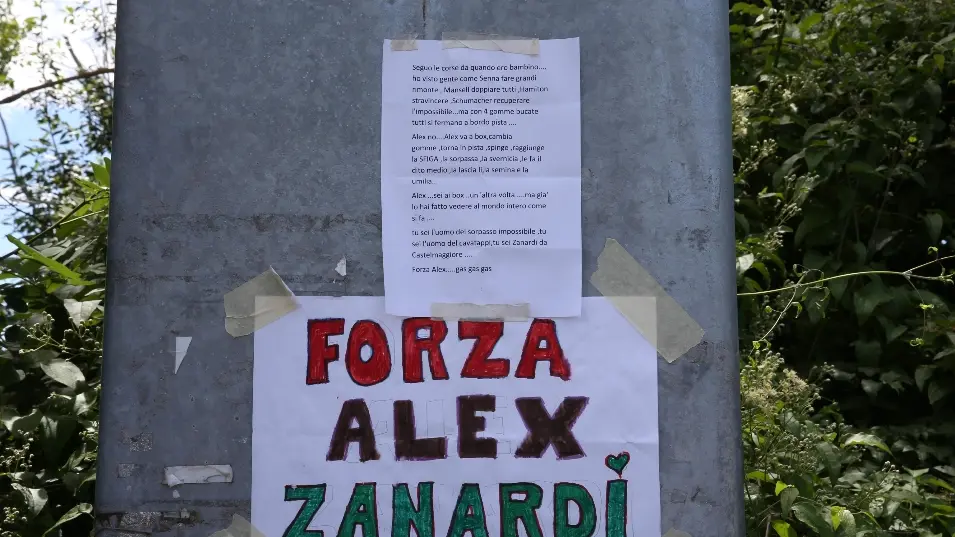 Seguo le corse da quando ero bambino....
ho visto gente come Senna fare grandi
rimonte , Mansell doppiare tutti ,Hamilton
stravincere ,Schumacher recuperare
l'impossibile...ma con 4 gomme bucate
tutti si fermano a bordo pista ....
Alex no....Alex va a box,cambia
gomme ,torna in pista ,spinge ,raggiunge
la SFIGA ,la sorpassa ,la svernicia ,le fa il
dito medio ,la lascia lì,la semina e la
umilia..
Alex ...sei ai box ..un 'altra volta ....ma gia'
lo hai fatto vedere al mondo intero come
si fa ....
tu sei l'uomo del sorpasso impossibile ,tu
sei l'uomo del cavatappi,tu sei Zanardi da
Castelmaggiore ....
Forza Alex.....gas gas gas
FORZA
ALEX
ZANARDI